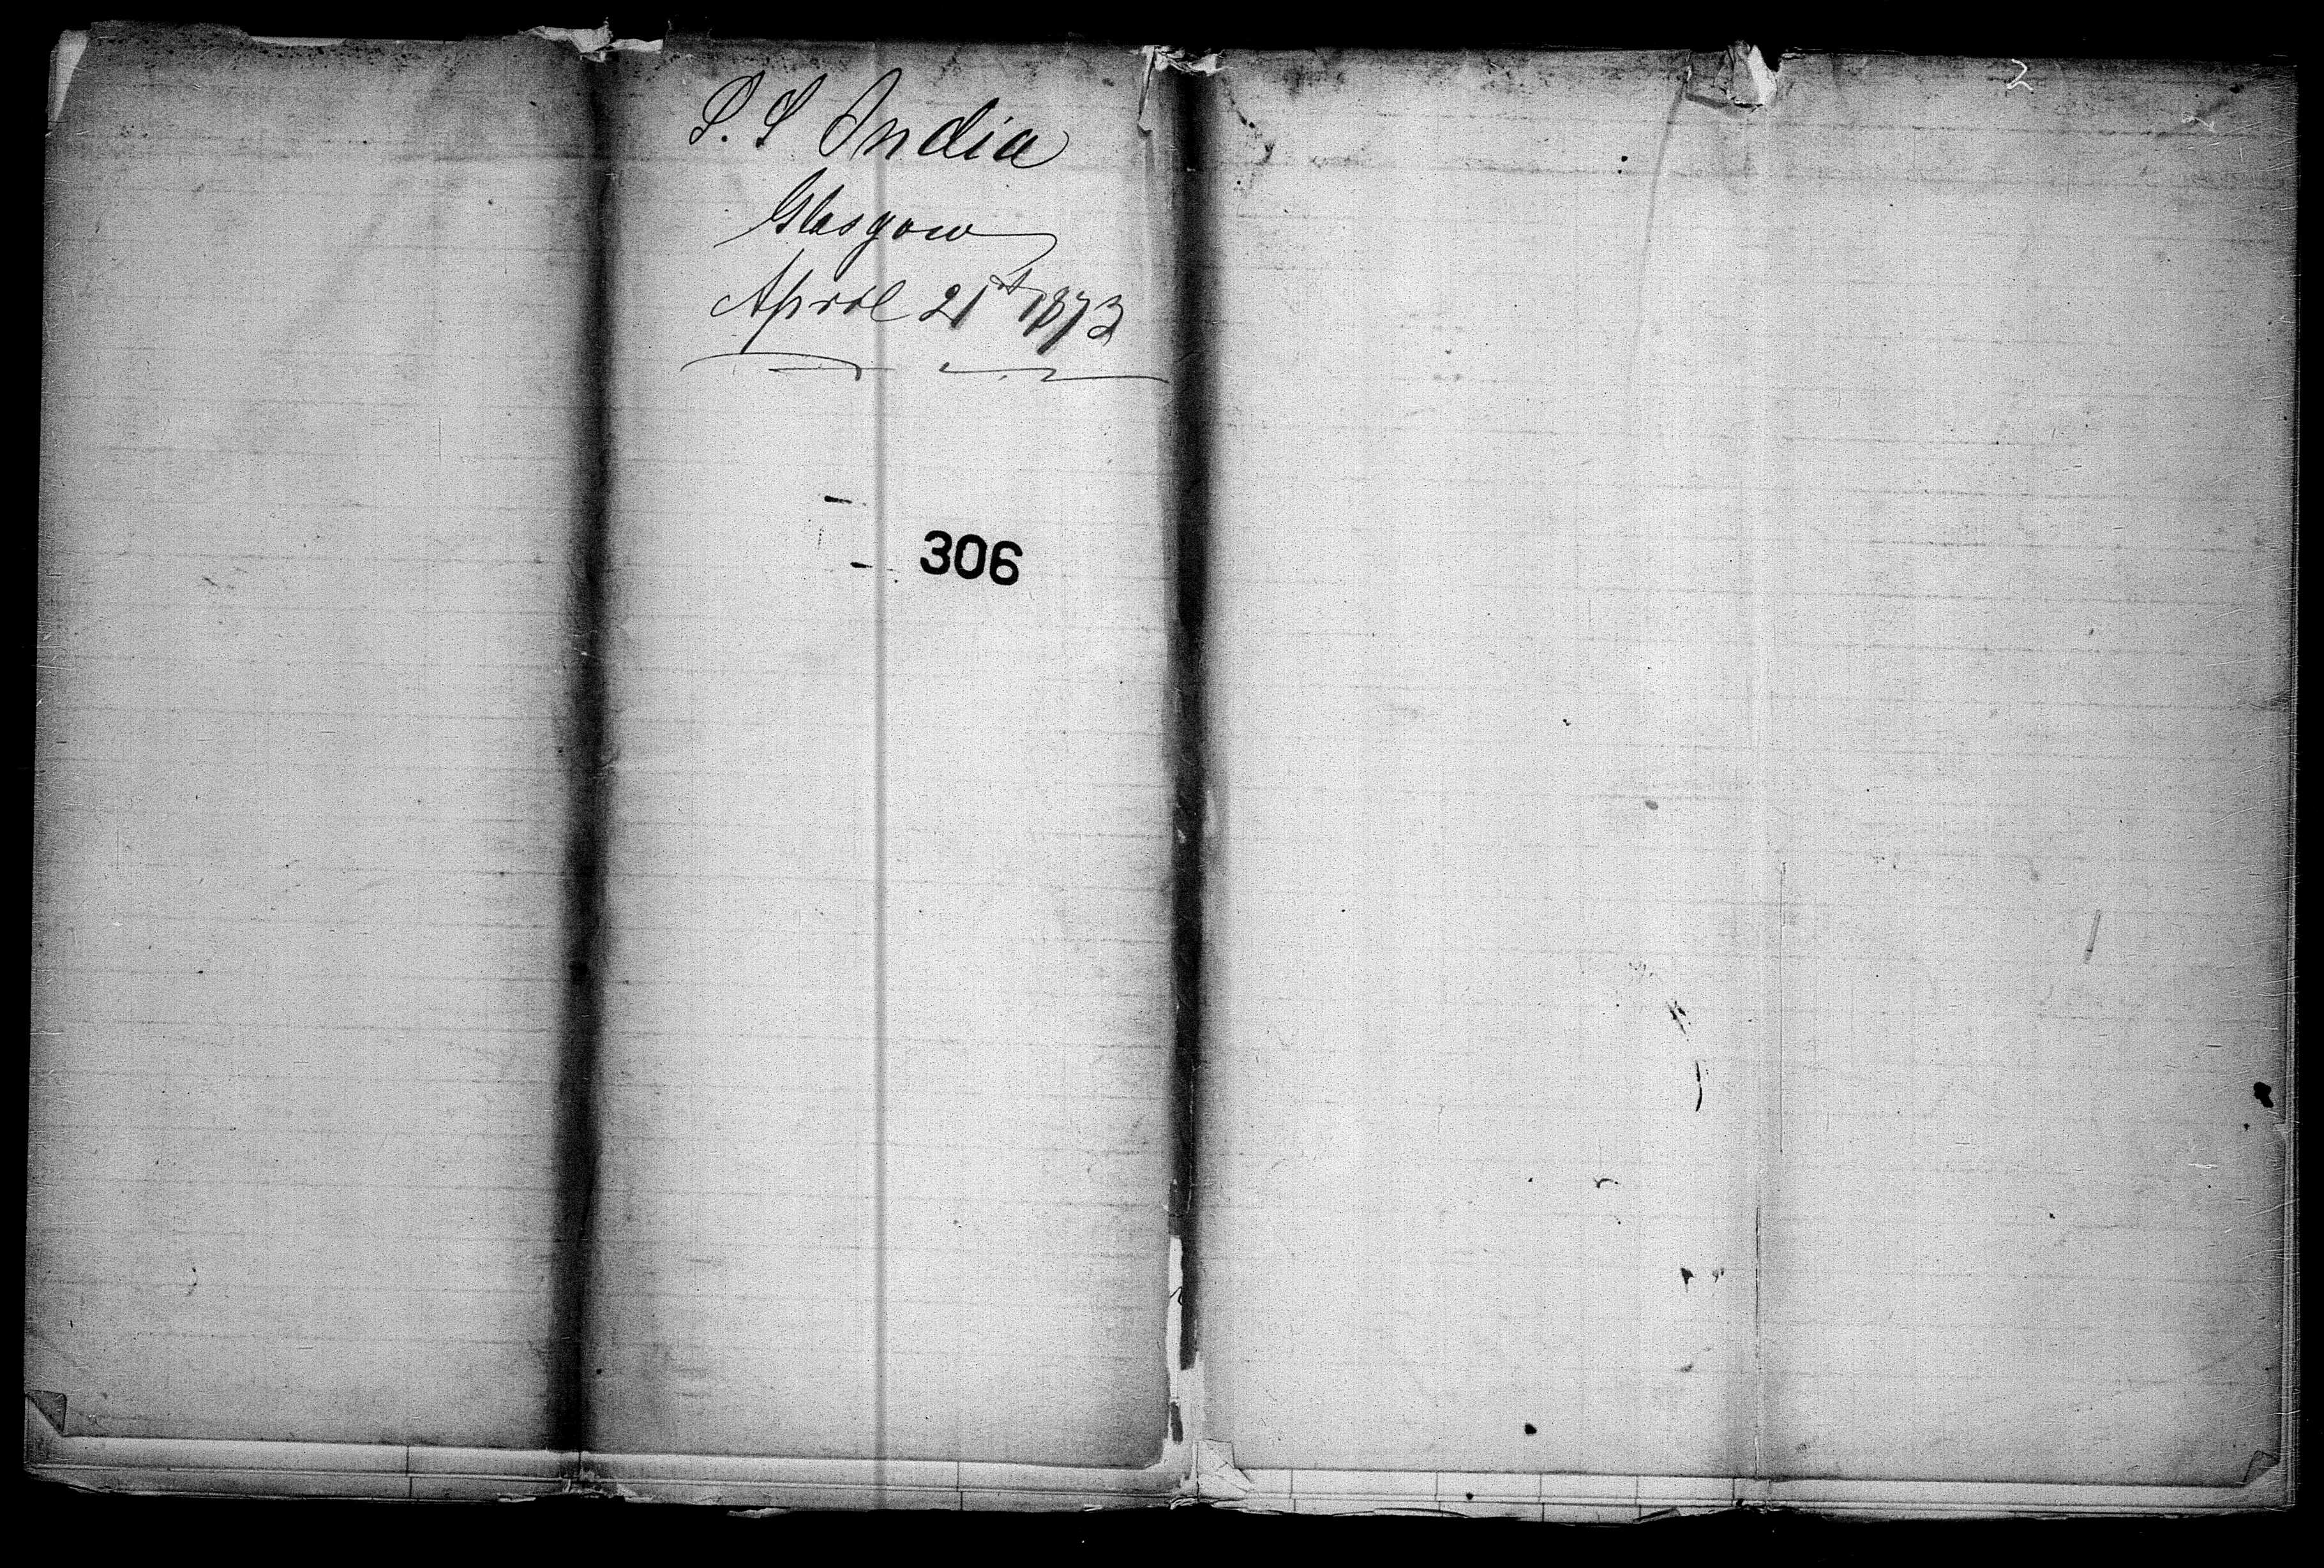 S. S India
Glasgow
April 21st 1873
306
2